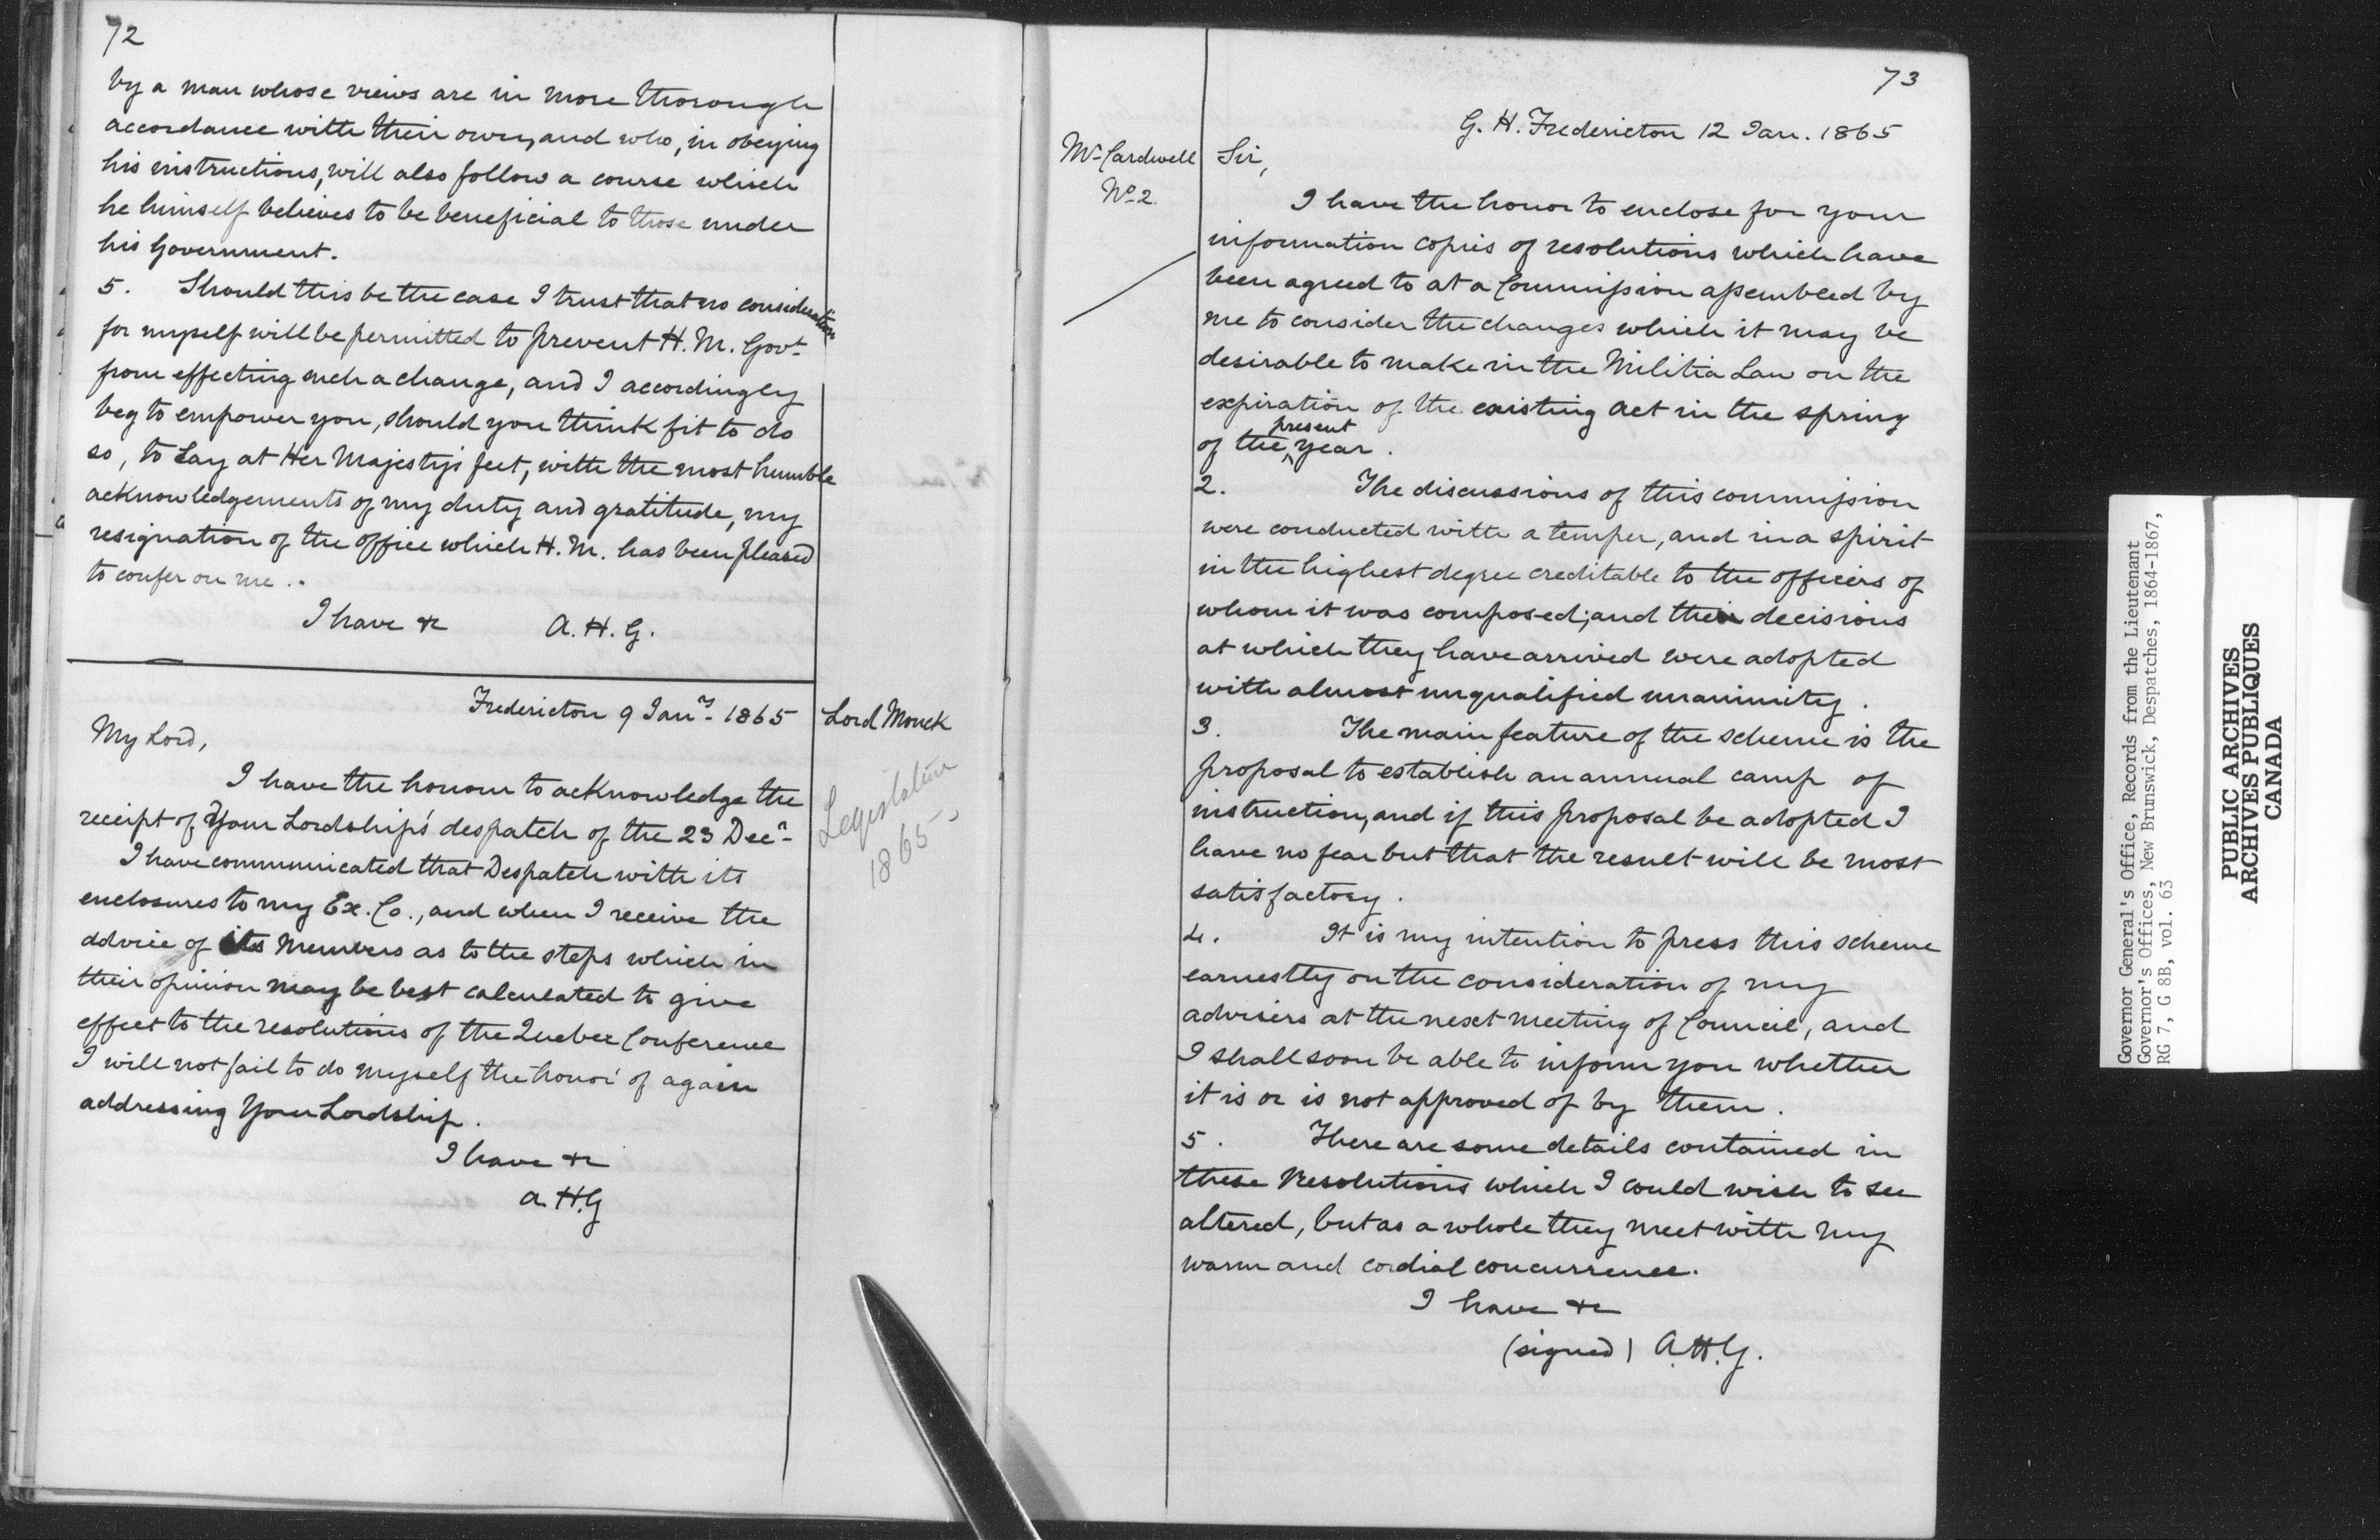 72
by a man whose views are in more thorough
accordance with their own, and who, in obeying
his instructions, will also follow a course which
he himself believes to be beneficial to those under
his Government.
5. Should this be the case I trust that no consideration
for myself will be permitted to prevent H. M. Govt
from effecting such a change, and I accordingly
beg to empower you, should you think fit to do
so, to Lay at Her Majesty's feet, with the most humble
acknowledgements of my duty and gratitude, my
resignation of the office which H. M. has been pleased
to confer on me..
I have &c A. H. G.
Fredericton 9 Jany 1865
Lord Monck
My Lord,
Legislation
1865
I have the honour to acknowledge the
receipt of Your Lordship's despatch of the 23 Decr
I have communicated that Despatch with its
enclosures to my Ex. Co., and when I receive the
advice of its Members as to the steps which in
their opinion may be best calculated to give
effect to the resolutions of the Quebec Conference
I will not fail to do myself the honor of again
addressing Your Lordship.
I have &c
A.H.G
73
G. H. Fredericton 12 Jan. 1865
Mr Cardwell
No 2.
Sir,
I have the honor to enclose for your
information copies of resolutions which have
been agreed to at a Commission assembled by
me to consider the changes which it may be
desirable to make in the Militia Law on the
expiration of the existing Act in the spring
of the present year.
2. The discussions of this commission
were conducted with a temper, and in a spirit
in the highest degree creditable to the officers of
whom it was composed; and the decisions
at which they have arrived were adopted
with almost unqualified unanimity.
3. The main feature of the scheme is the
proposal to establish an annual camp of
instruction, and if this proposal be adopted I
have no fear but that the result will be most
satisfactory.
4. It is my intention to press this scheme
earnestly on the consideration of my
advisers at the next meeting of Council, and
I shall soon be able to inform you whether
it is or is not approved of by them.
5. There are some details contained in
these Resolutions which I could wish to see
altered, but as a whole they meet with my
warm and cordial concurrence.
I have &c
(signed) A.H.G.
Governor General's Office, Records from the Lieutenant
Governor's Offices, New Brunswick, Despatches, 1864-1867,
RG 7, G 8B, vol. 63
PUBLIC ARCHIVES
ARCHIVES PUBLIQUES
CANADA